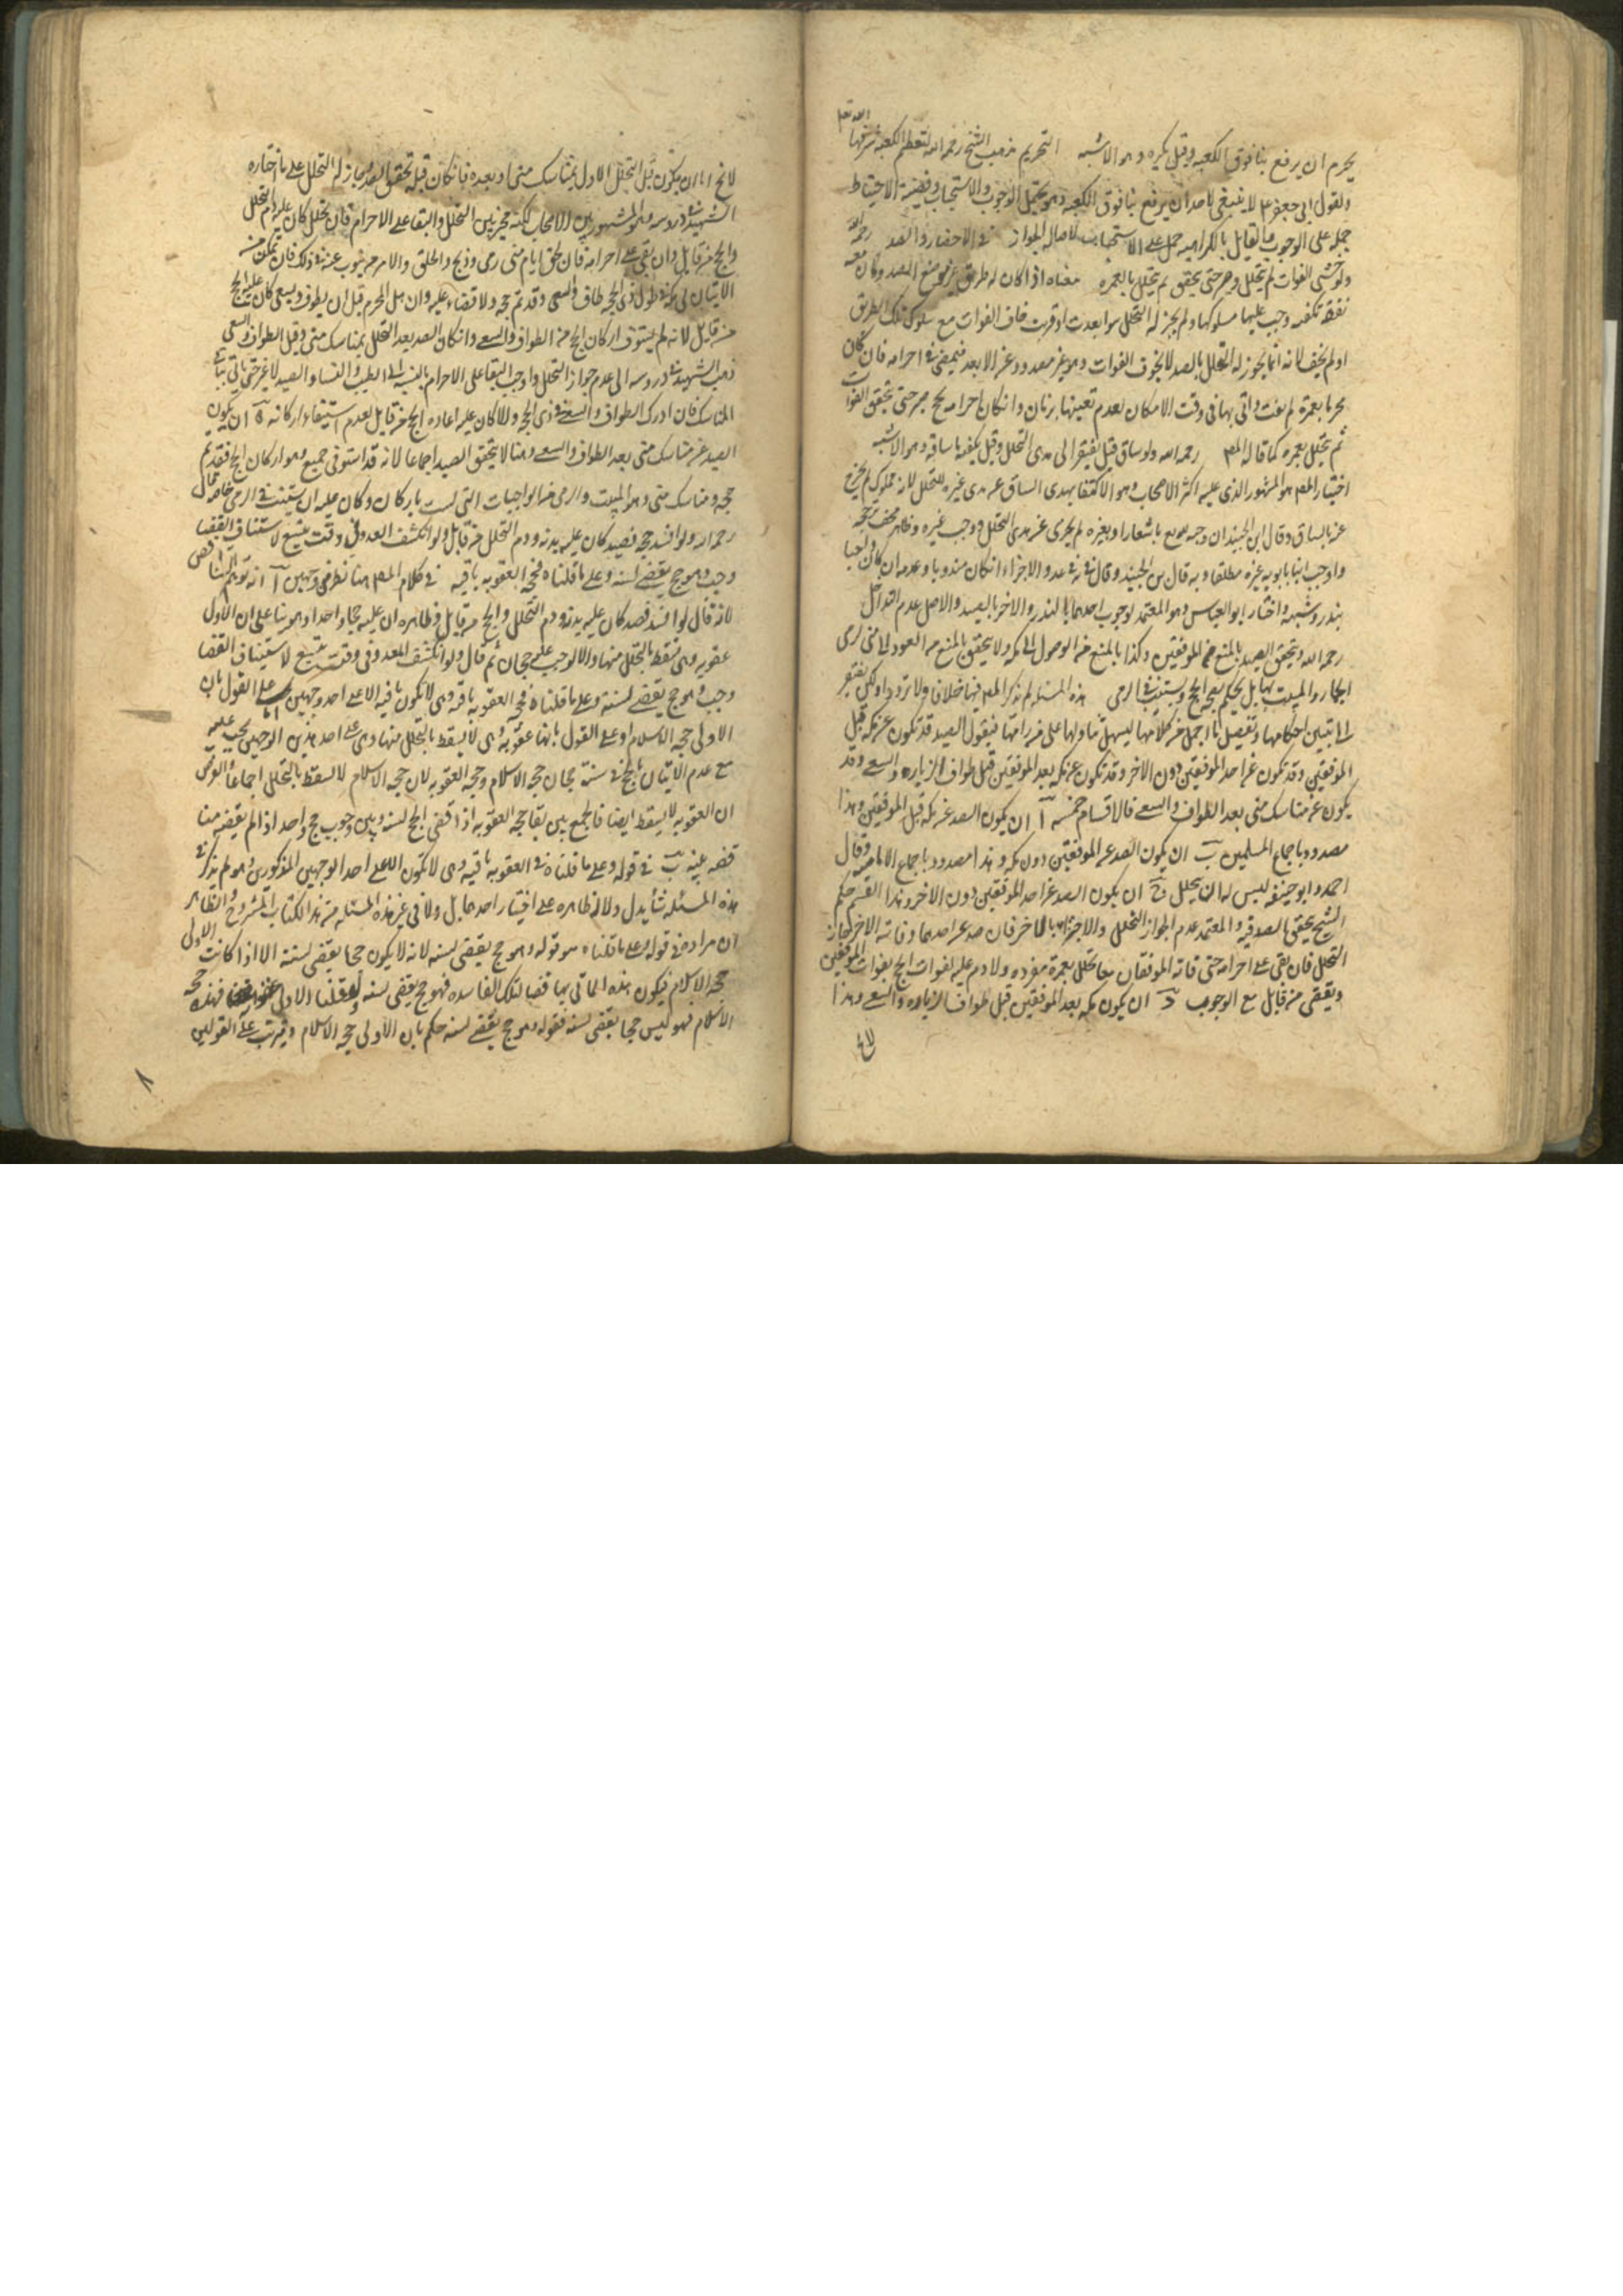 الله تعم
يحرم ان يرفع بنا فوق الكعبه وقيل يكره وهو الاشبه التحريم مذهب الشيخ رحمه الله لتعظيم الكعبه شرفها
والقول ابى جعفر ع لا ينبغى لاحد ان يرفع بنا فوق الكعبه وهو يحتمل الوجوب والاستحباب وقضيه الاحتياط
حمله على الوجوب والقايل بالكراهيه حمل على الاستحباب لاصاله الجواز فى الاحصار والصد رحمه الله
ولو خشى الفوات لم يتحلل وصبر حتى يتحقق ثم يتحلل بالعمره معناه اذا كان له طريق غير موضع الصد وكان معه
نفقه تكفيه وجب عليها سلوكها ولم يجز له التحلل سوا بعدت او قربت خاف الفوات مع سلوك تلك الطريق
او لم يخف لانه انما يجوز له التحلل بالصد لا بخوف الفوات وهو غير مصدود عن الابعد فيمضى فى احرامه فان كان
محرما بعمره لم تفت واتى بها فى وقت الامكان لعدم تعيينها بزمان وان كان احرامه بحج صبر حتى يتحقق الفوات
ثم يتحلل بعمره كما قاله المص رحمه الله ولو ساق قيل يفتقر الى هدى التحلل وقيل يكفيه ما ساقه وهو الاشبه
اختيار المص هو المشهور الذى عليه اكثر الاصحاب وهو الاكتفا بهدى السياق عن هدى غيره للتحلل لانه مملوك لم يخرج
عنه بالسياق وقال ابن الجنيد ان وجب باشعار او بغيره لم يجزى عن هدى التحلل ووجب غيره
واوجب ابنا بابويه غيره مطلقا وبه قال ابن الجنيد وعدم الاجزاء ان كان مندوبا وعدمه ان كان واجبا
بنذر وشبهه واختاره ابو العباس وهو المعتمد لوجوب احدهما بالنذر والاخر بالصد والاصل عدم التداخل
رحمه الله ويتحقق الصد بالمنع من الموقفين وكذا بالمنع من الوصول الى مكه ولا يتحقق بالمنع من العود الى منى لرمى
الجمار والمبيت بها بل يحكم بصحه الحج ويستنيب فى الرمى هذه المسئله لم يذكر المص فيها خلافا ولا ترددا ولكن يفتقر
الى تبيين احكامها وتفصيل ما اجمل من كلامها ليسهل تناولها على من رامها فنقول الصد قد يكون عن مكه قبل
الموقفين وقد يكون عن احد الموقفين دون الاخر وقد يكون عن مكه بعد الموقفين قبل طواف الزياره والسعى وقد
يكون عن مناسك منى بعد الطواف والسعى فالاقسام خمسه آ ان يكون الصد عن مكه قبل الموقفين وهذا
مصدود باجماع المسلمين ب ان يكون الصد عن الموقفين دون مكه وهذا مصدود باجماع الاماميه وقال
احمد وابو حنيفه ليس له ان يتحلل ج ان يكون الصد عن احد الموقفين دون الاخر وهذا القسم حكم
الشيخ بتحقق الصد فيه والمعتمد عدم الجواز التحلل والاجتزا بالاخر فان صد عن احدهما وفاته الاخر جاز
التحلل فان بقى على احرامه حتى فاته الموقفان معا تحلل بعمره مفرده ولا دم عليه لفوات الحج بفوات الموقفين
ويقضى من قابل مع الوجوب د ان يكون مكه بعد الموقفين قبل طواف الزياره والسعى وهذا
لا يخ
لا يخ اما ان يكون قبل التحلل الاول بمناسك منى او بعده فان كان قبله تحقق الصد وجاز له التحلل على ما اختاره
الشهيد فى دروسه وهو المشهور بين الاصحاب لكنه مخير بين التحلل والبقا على الاحرام فان تحلل كان عليه دم التحلل
والحج من قابل وان بقى على احرامه فان لحق ايام منى رمى وذبح وحلق والا امر من ينوب عنه فى ذلك فان تمكن من
الاتيان الى مكه فى طول ذى الحجه طاف وسعى وقد تم حجه ولا قضاء عليه وان هل المحرم قبل ان يطوف ويسعى كان عليه الحج
من قابل لانه لم يستوف اركان الحج من الطواف والسعى وان كان الصد بعد التحلل بمناسك منى وقبل الطواف والسعى
ذهب الشهيد فى دروسه الى عدم جواز التحلل واوجب البقا على الاحرام بالنسبه الى الطيب والنساء والصيد لا غير حتى ياتى بباقى
المناسك فان ادرك الطواف والسعى فى ذى الحجه والا كان عليه اعاده الحج من قابل لعدم استيفاء اركانه ه ان يكون
الصد عن مناسك منى بعد الطواف والسعى وهنا لا يتحقق الصد اجماعا لانه قد استوفى جميع اركان الحج فقد تم
حجه ومناسك منى وهو المبيت والرمى من الواجبات التى ليست باركان وكان عليه ان يستنيب فى الرمى خاصه قال
رحمه الله ولو افسد حجه فصد كان عليه بدنه ودم التحلل من قابل ولو انكشف العدو فى وقت يتسع لاستيناف القضا
وجب وهو حج يقضى لسنته وعلى ما قلناه فحجه العقوبه باقيه فى كلام المص هنا نظر من وجهين آ
لانه قال لو افسد فصد كان عليه بدنه ودم التحلل والحج من قابل وظاهره ان عليه حجا واحدا وهو بنا على ان الاولى
عقوبه وهى تسقط بالتحلل منها والا لوجب عليه حجان ثم قال ولو انكشف العدو فى وقت يتسع لاستيناف القضا
وجب وهو حج يقضى لسنته وعلى ما قلناه فحجه العقوبه باقيه وهى لا تكون باقيه الا على احد وجهين اما على القول بان
الاولى حجه الاسلام او على القول بانها عقوبه وهى لا تسقط بالتحلل منها وعلى احد هذين الوجهين يجب عليه
مع عدم الاتيان بالحج فى سنته حجان حجه الاسلام وحجه العقوبه لان حجه الاسلام لا تسقط بالتحلل اجماعا والفرض
ان العقوبه لا تسقط ايضا فالجمع بين بقا حجه العقوبه اذا قضى الحج لسنته وبين وجوب حج واحد اذا لم يقضه
ب فى قوله وعلى ما قلناه فى العقوبه باقيه وهى لا تكون الا على احد الوجهين المذكورين وهو لم يذكر فى
هذه المسئله شأ يدل دلاله ظاهره على اختيار احدهما بل ولا فى غير هذه المسئله من هذا الكتاب المشروح والظاهر
ان مراده فى قوله وعلى ما قلناه هو قوله وهو حج يقضى لسنته لانه لا يكون حجا يقضى لسنته الا اذا كانت الاولى
حجه الاسلام فيكون هذه الماتى بها قضا لتلك الفاسده فهو حج يقضى لسنته ولو قلنا الاولى عقوبه فهذه حجه
الاسلام فهو ليس حجا يقضى لسنته فقوله وهو حج يقضى لسنته حكم بان الاولى حجه الاسلام ويترتب على القولين
٨